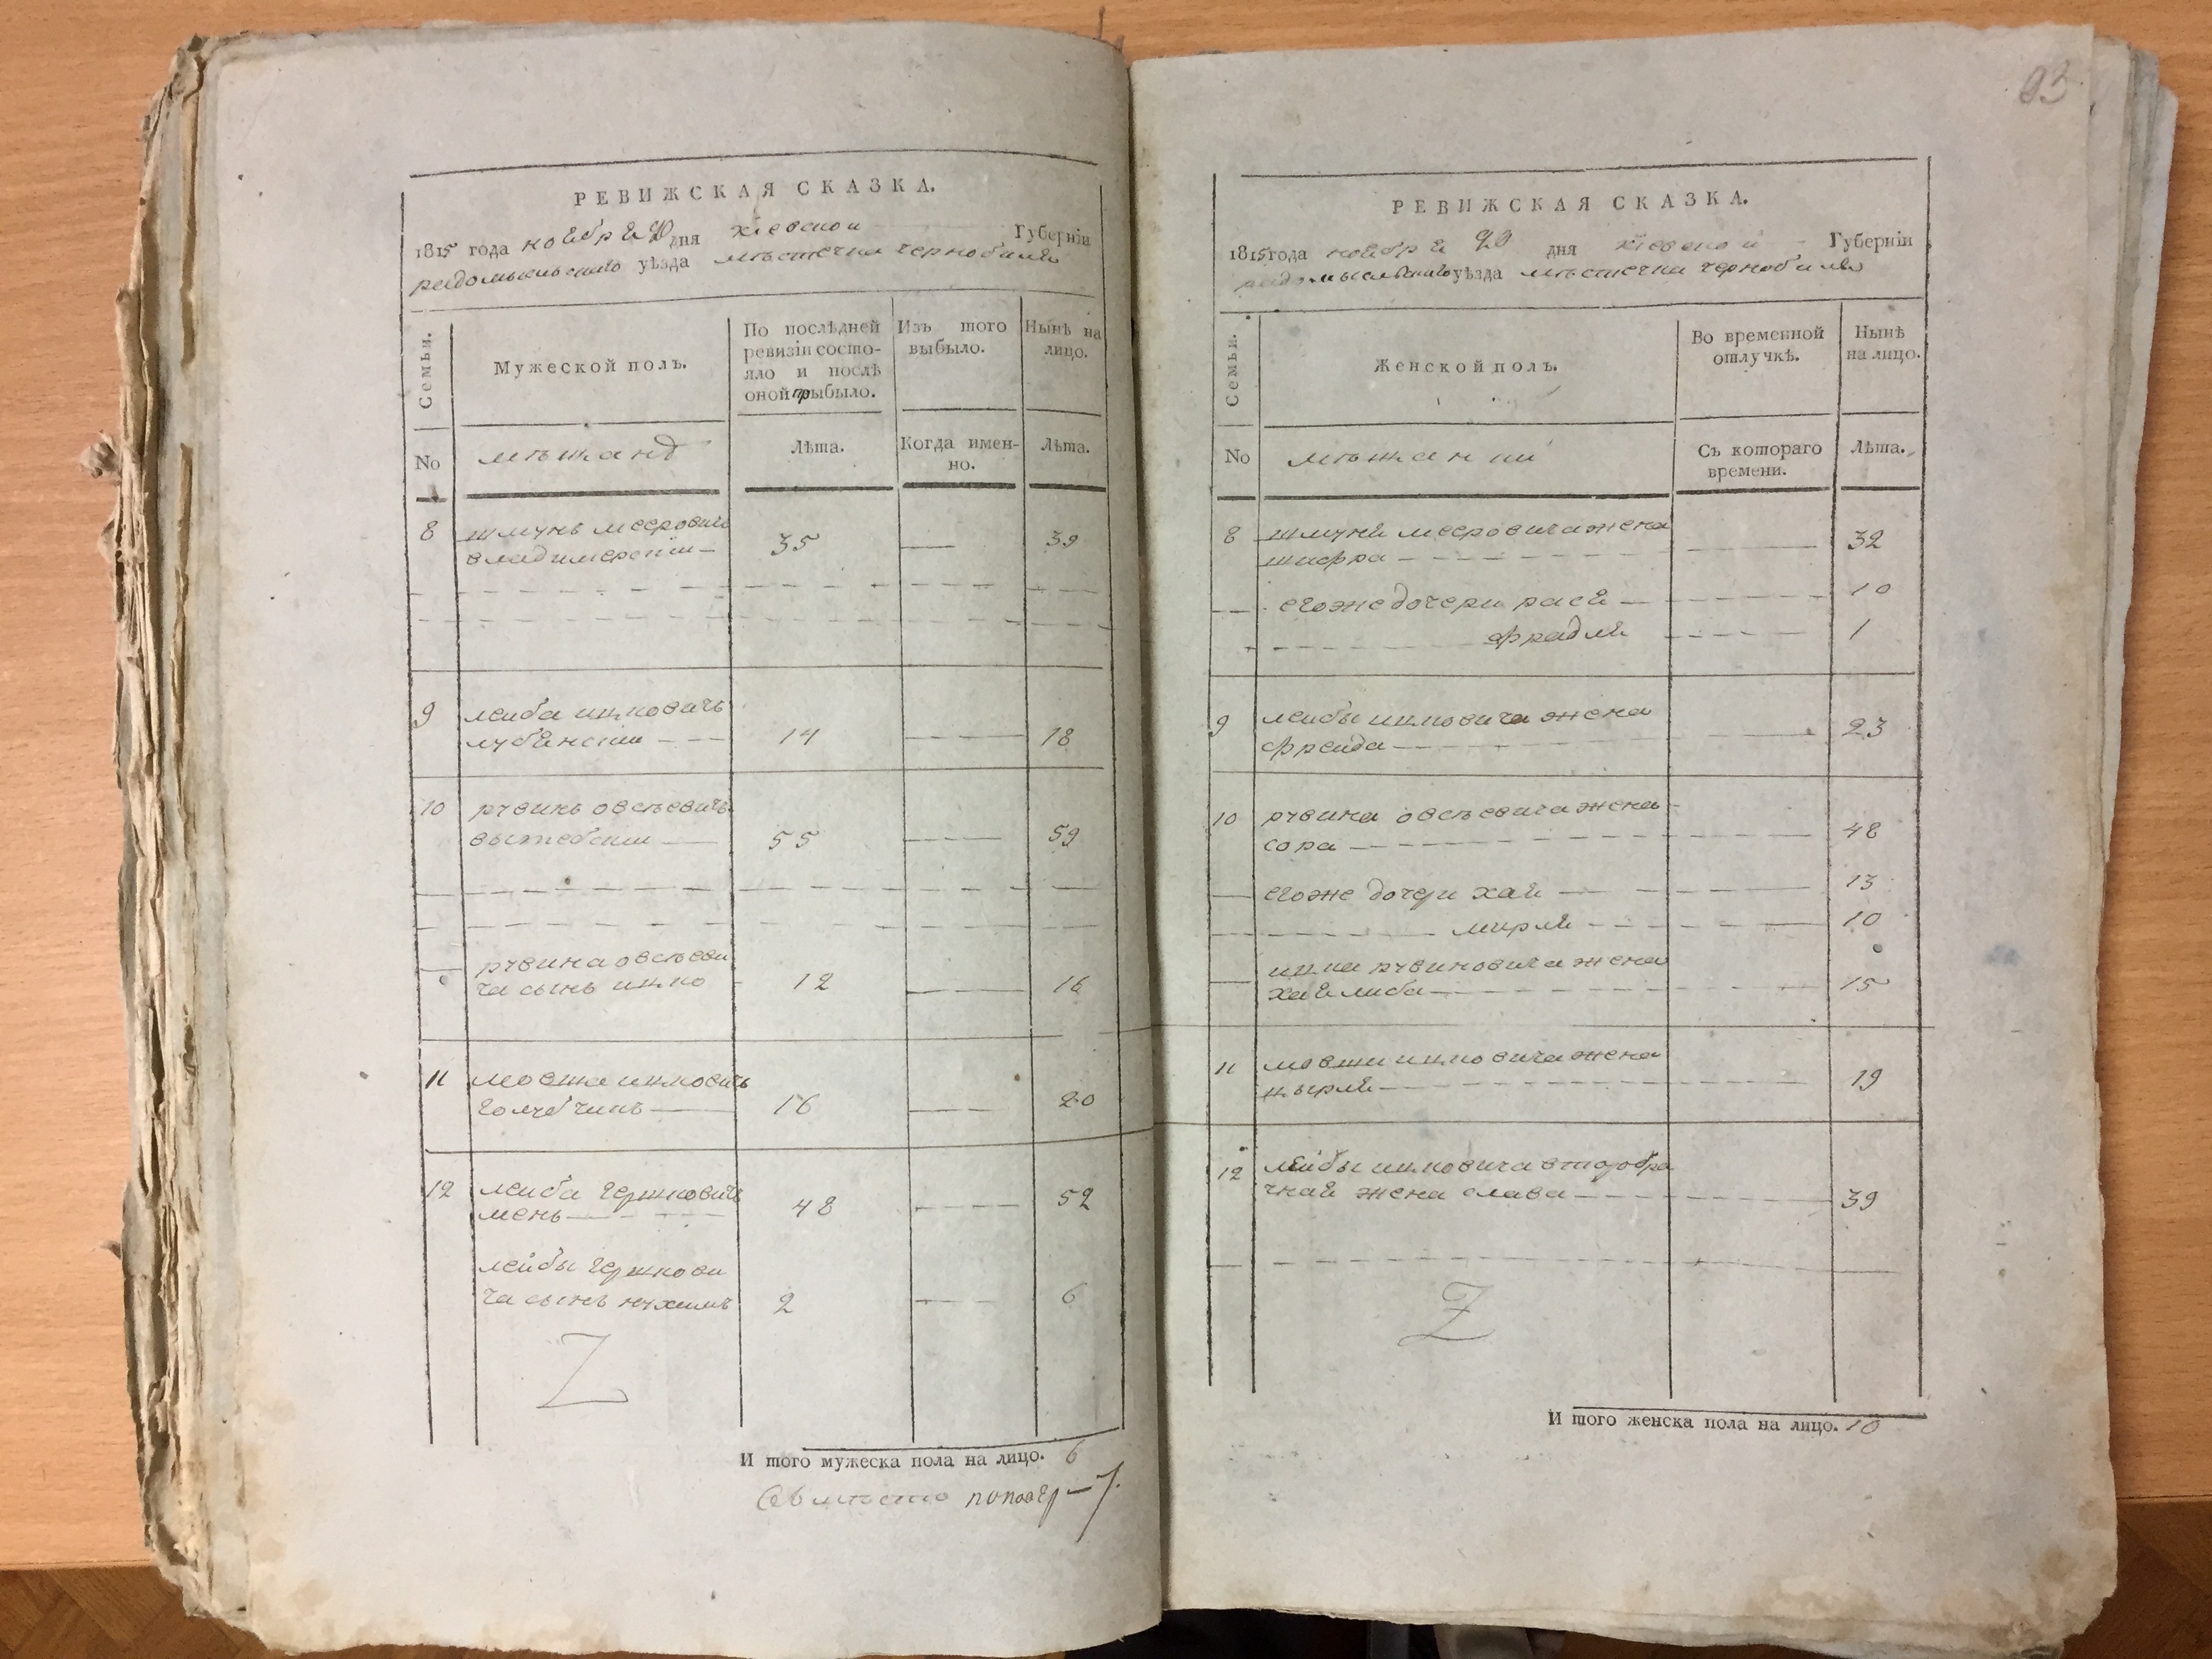 РЕВИЖСКАЯ СКАЗКА.
1815 года ноября 20 дня кіевской Губерніи
радомысльского уѣзда мѣстечка чернобиля
Семьи.
Мужеской полъ.
По послѣдней ревизіи состояло и послѣ оной прыбыло.
Изъ того выбыло.
Нынѣ на лицо.
No
мѣщанъ
Лѣта.
Когда именно.
Лѣта.
8 шлунь мееровичь
владимерскіи 35 39
9 лейба ицковичь
лубянскіи 14 18
10 рувинь овсѣевичь
вытебскіи 55 59
рувина овсѣеви
ча сынь ицко 12 16
11 мовша ицковичь
голубчикъ 16 20
12 лейба гершковичь
мень 48 52
лейбы гершкови
ча сынъ нухимъ 2 6
И того мужеска пола на лицо. 6
03
РЕВИЖСКАЯ СКАЗКА.
1815 года ноября 20 дня кіевской Губерніи
радомысльского уѣзда мѣстечка чернобиля
Семьи.
Женской полъ.
Во временной отлучкѣ.
Нынѣ на лицо.
No
мѣщанки
Съ котораго времени.
Лѣта.
8 шлуня мееровича жена
шифра 32
егоже дочери рася 10
фрадля 1
9 лейбы ицковича жена
фрейда 23
10 рувина овсѣевича жена
сора 48
егоже дочери хая 13
мирля 10
ицка рувиновича жена
хая либа 15
11 мовши ицковича жена
цырля 19
12 лейбы ицковича второбра
чная жена слава 39
И того женска пола на лицо. 10